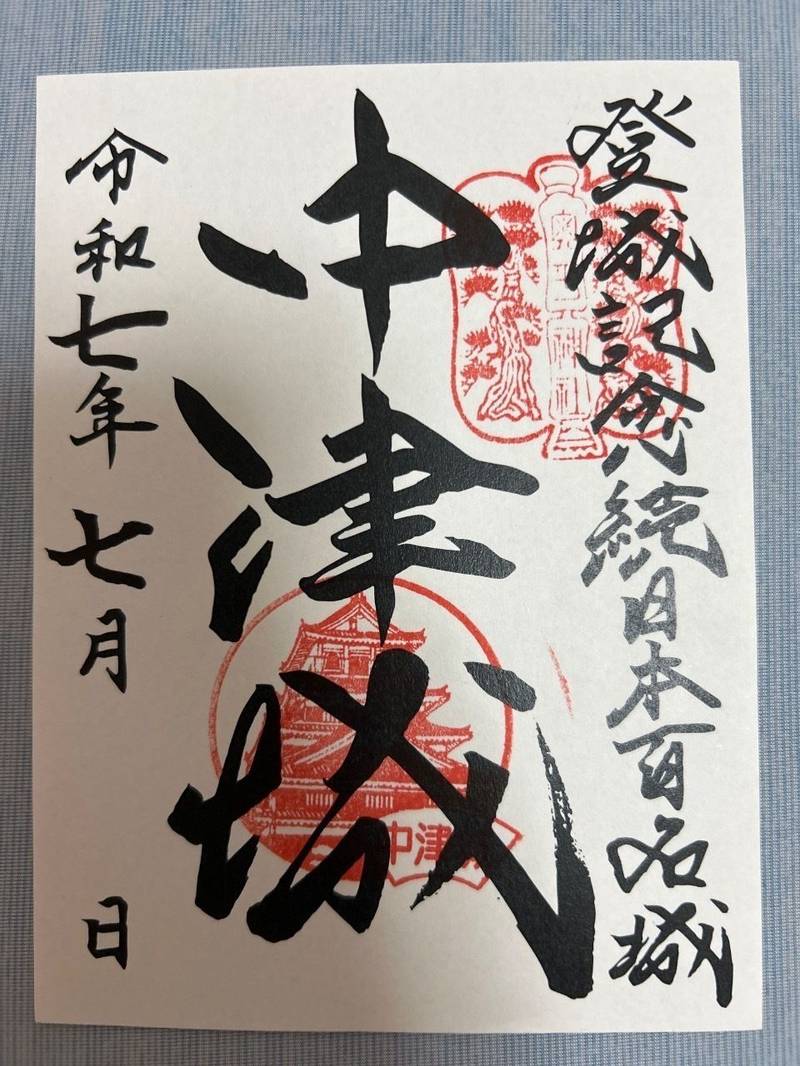 登城記念 続日本百名城
中津城
令和七年 七月 日
中津